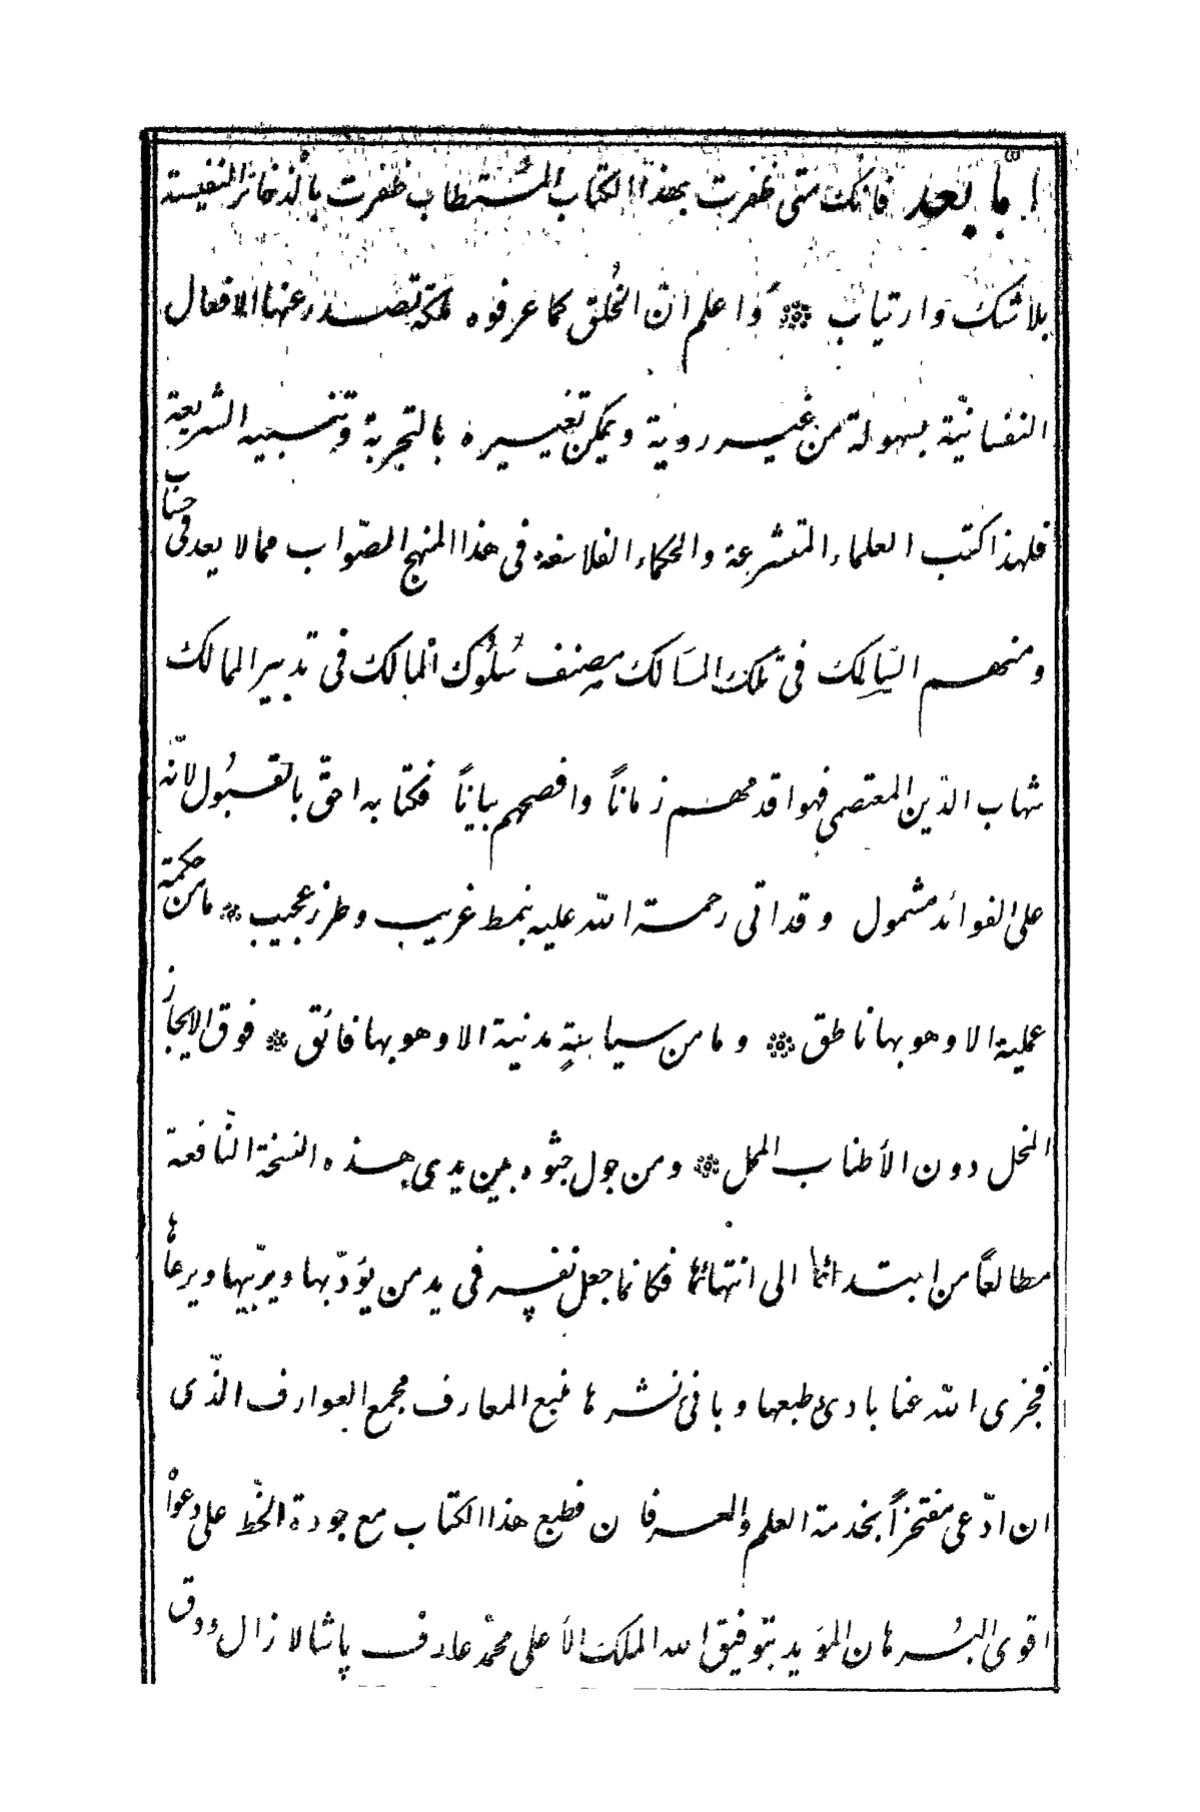 اما بعد فانك متى ظفرت بهذا الكتاب المُستطاب ظفرت بالذخائر النفيسة
بلا شك وارتياب ۞ وَاعلم انّ الخُلق كما عرفوه ملكة تصدر عنها الافعال
النفسانيّة بسهولة من غير روية ويمكن تغييره بالتجربة وتنبيه الشريعة
فلهذا كتب العلماء المتشرعة والحكماء الفلاسفة فى هذا المنهج الصّواب مما لا يعد فى حساب
ومنهم السَّالِك فى تلك المسَالك مصنف سُلُوك الْمالك فى تدبير الممالك
شهاب الدّين المعتصمى فهو اقدمهم زماناً وافصحهم بياناً فكتابه احقّ بالقبُول لانّه
على الفوائد مشمول وقد اتى رحمة الله عليه بنمط غريب وطرز عجيب ۞ ما من حكمة
عملية الا وهو بها ناطق ۞ وما من سياسةٍ مدنية الا وهو بها فائق ۞ فوق الايجاز
المخل دون الأطناب الممل ۞ ومن جول جثوه بين يدى هذه النسخة النّافعة
مطالعًا من ابتدائها الى انتهائها فكانما جعل نفسه فى يد من يؤدّبها ويربّيها ويرعاها
فجزى الله عنا بادئ طبعها وبانى نشرها منبع المعارف مجمع العوارف الذّى
ان ادّعى مفتخراً بخدمة العلم والعرفان فطبع هذا الكتاب مع جودة الخّط على دعواْه
اقوى البُرهان المؤيد بتوفيق الله الملك الأعلى محمّد عارف پاشا لا زال ووق